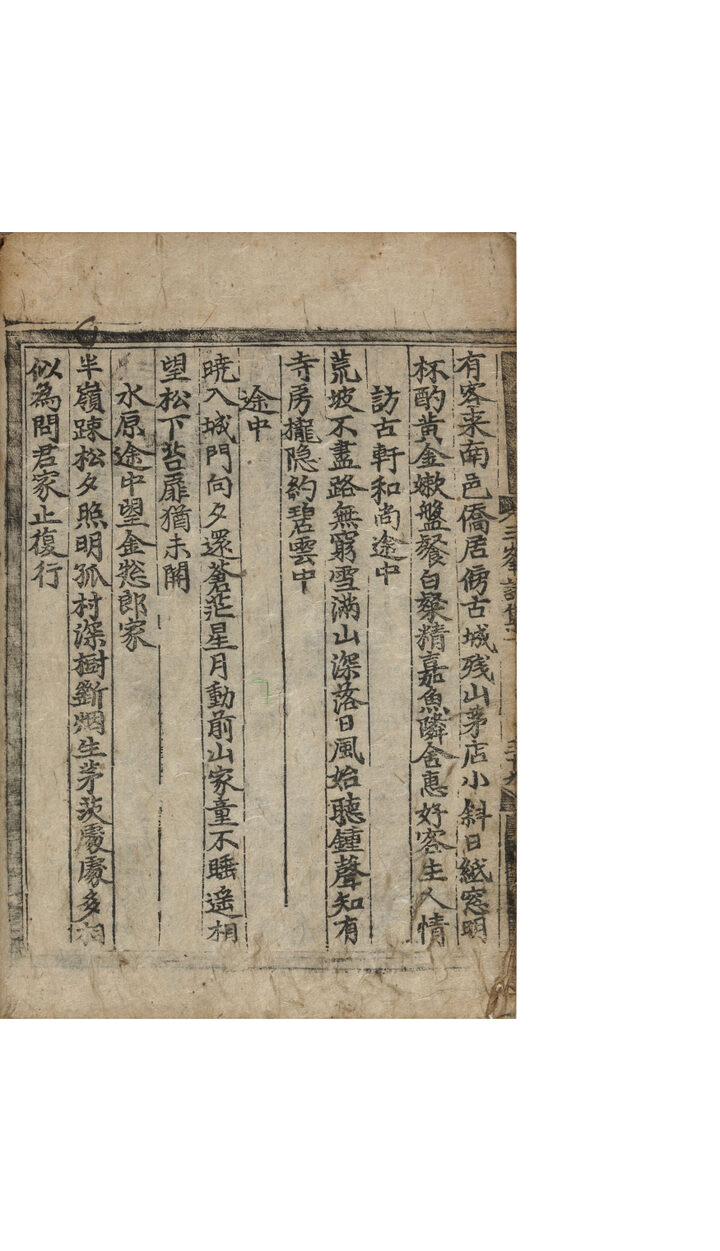 有客来南邑僑居傍古城残山茅店小斜日紙窓明
杯酌黄金嫩盤飱白粲精嘉魚隣舍惠好客主人情
訪古軒和尚途中
荒坡不盡路無窮雪滿山深落日風始聽鍾聲知有
寺房櫳隐約碧雲中
途中
曉入城門向夕還蒼茫星月動前山家童不睡遥相
望松下苔扉猶未開
水原途中望金郎家
半嶺踈松夕照明孤村深樹斷烟生茅茨處處多相
似為問君家止復行